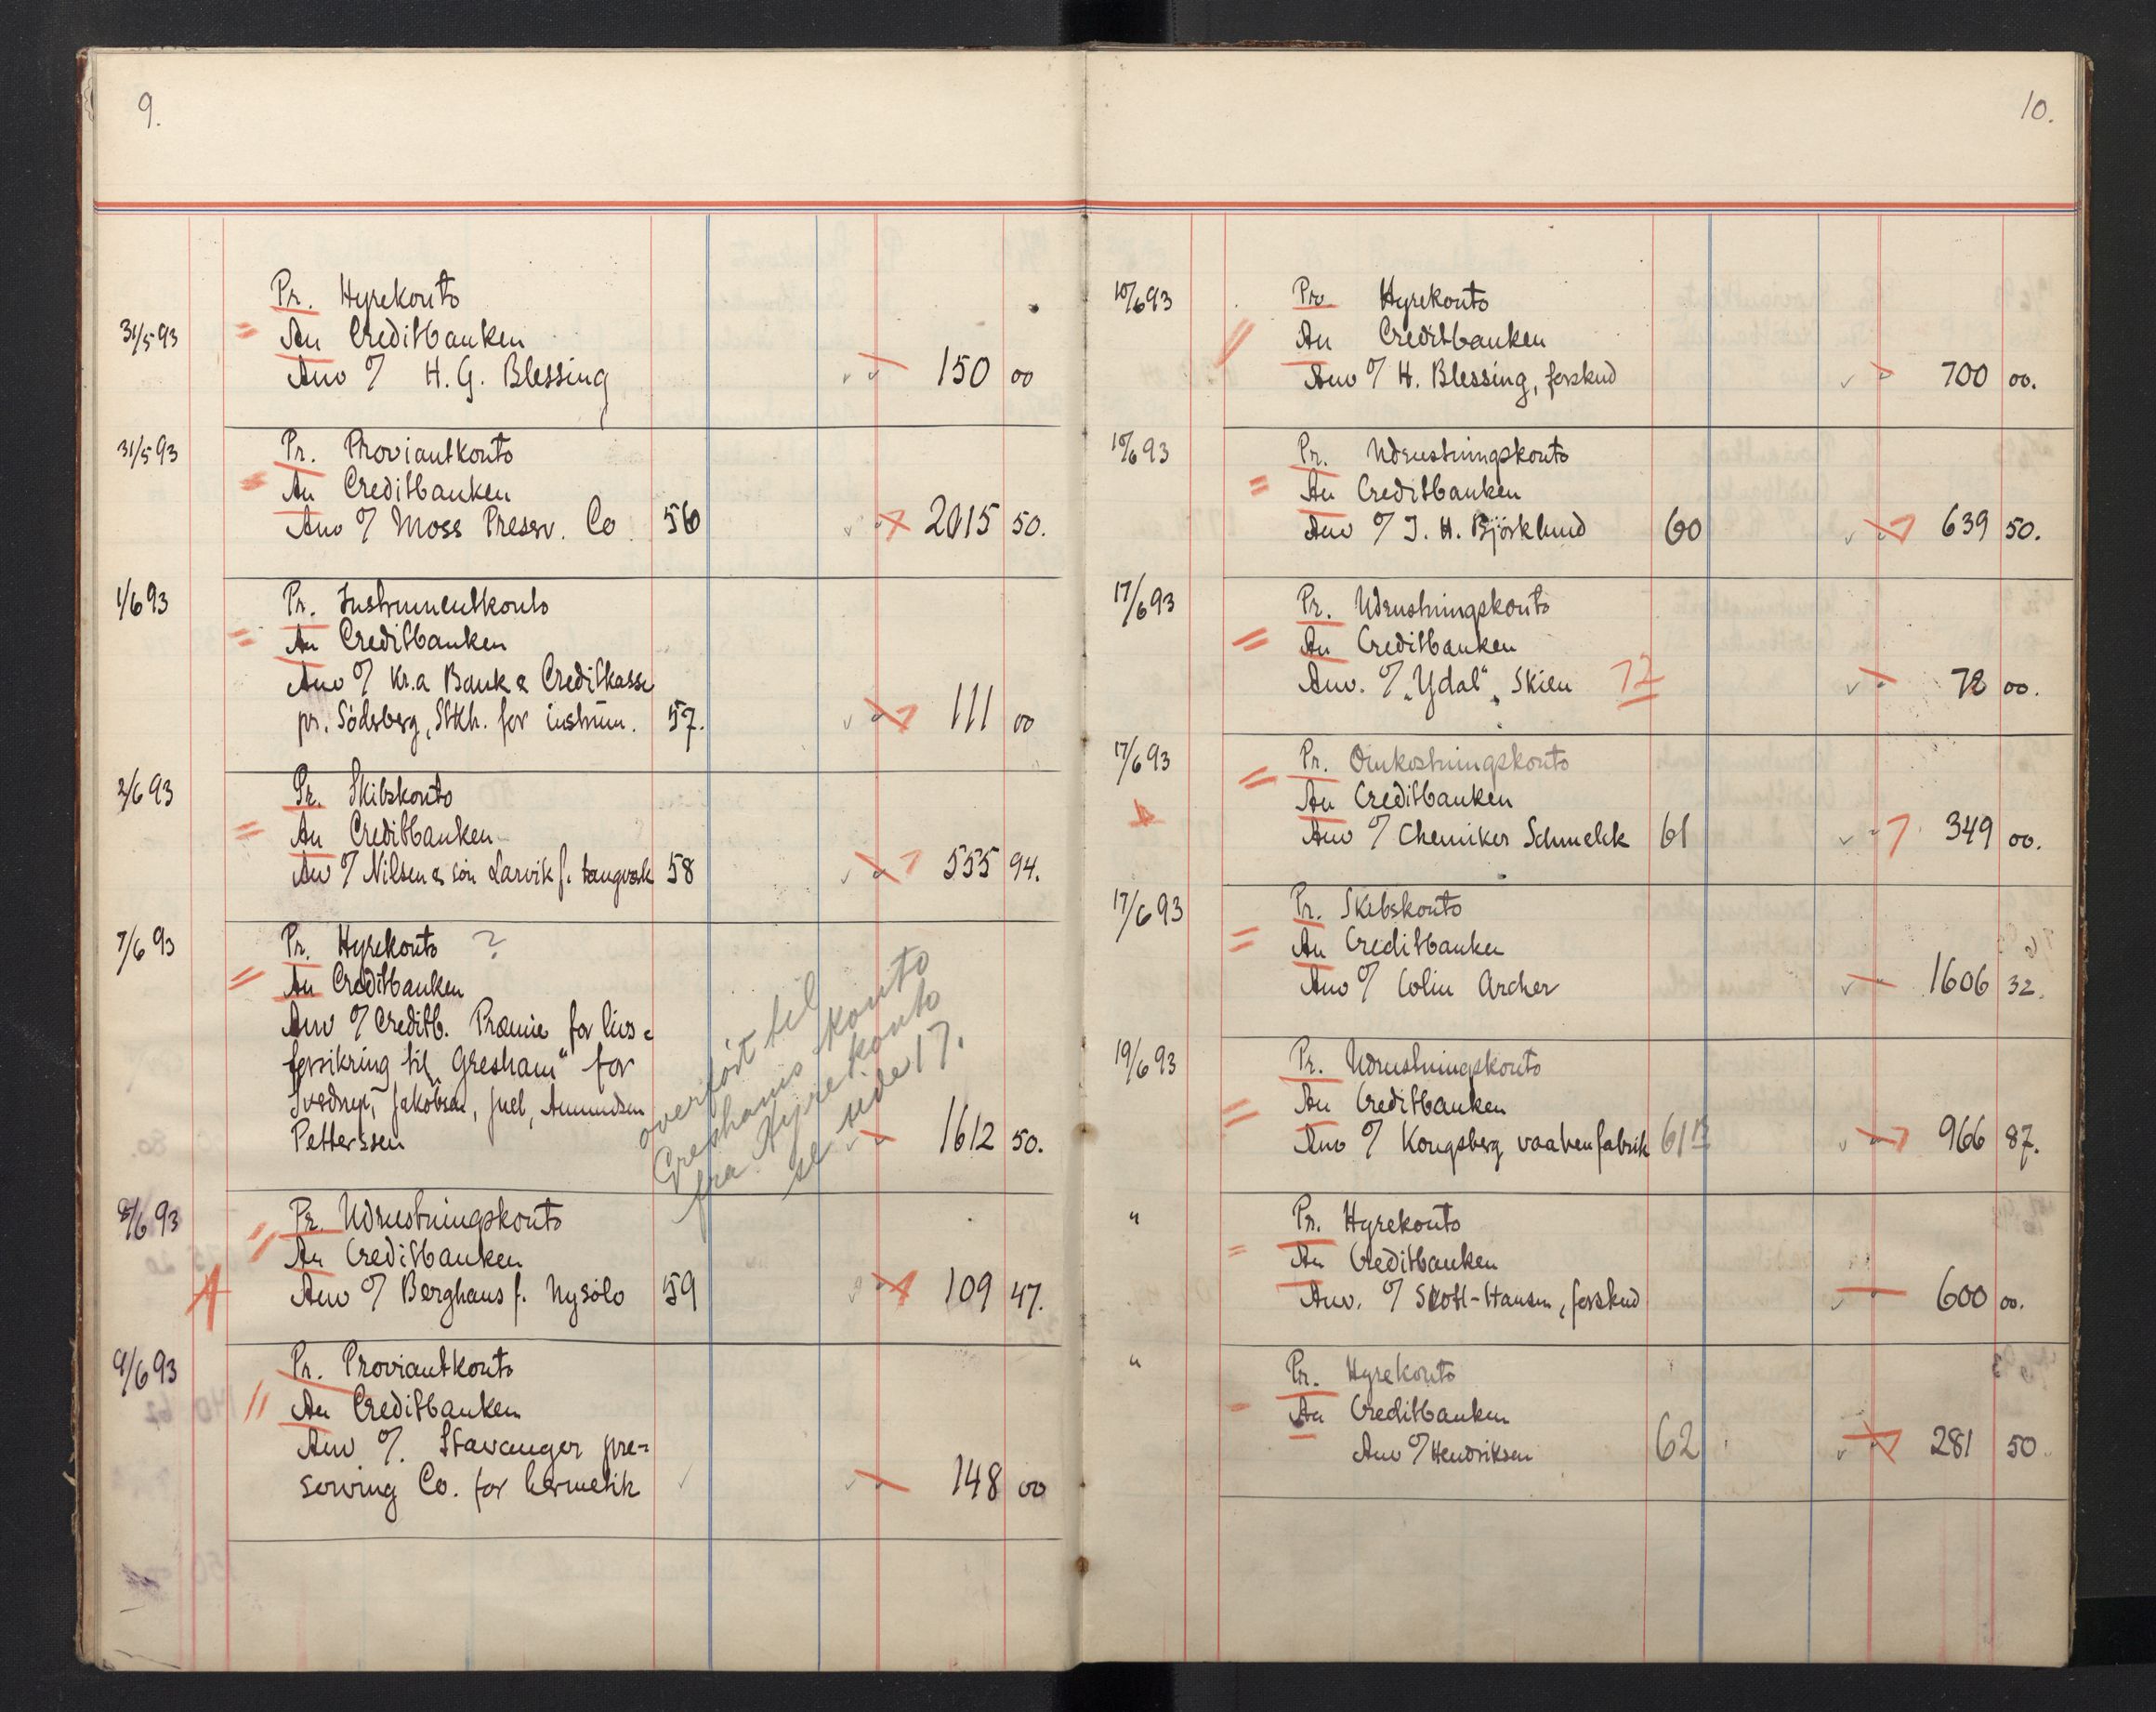 9.
Pr. Hyrekonto
31/5 93 An Creditbanken
Anv % H. G. Blessing 150 00
31/5 93 Pr. Proviantkonto
An Creditbanken
Anv % Moss Preserv. Co 56 2015 50.
1/6 93 Pr. Instrumentkonto
An Creditbanken
Anv % Kr.a Bank & Creditkasse
pr. Söderberg, Stkh. for instrum. 57. 111 00
2/6 93 Pr. Skibskonto
An Creditbanken
Anv % Nilsen & sön Larvik f. tangverk 58 555 94.
7/6 93 Pr. Hyrekonto ?
An Creditbanken
Anv % Creditb. Præmie for livs=
forsikring til "Gresham" for
Sverdrup, Jakobsen, Juel, Amundsen
Petterssen 1612 50.
overfört til
Greshams konto
fra Hyrekonto
se side 17.
8/6 93 Pr. Udrustningskonto
An Creditbanken
Anv % Berghaus f. Nysölo 59 109 47.
9/6 93 Pr. Proviantkonto
An Creditbanken
Anv % Stavanger pre=
serving Co. for hermetik 148 00
10.
10/6 93 Pr. Hyrekonto
An Creditbanken
Anv % H. Blessing, forskud 700 00.
10/6 93 Pr. Udrustningskonto
An Creditbanken
Anv % J. H. Björklund 60 639 50.
17/6 93 Pr. Udrustningskonto
An Creditbanken
Anv. % "Ydal", Skien 72 72 00.
17/6 93 Pr. Omkostningskonto
An Creditbanken
Anv % Chemiker Schmelck 61 349 00.
17/6 93 Pr. Skibskonto
An Creditbanken
Anv % Colin Archer 1606 32.
19/6 93 Pr. Udrustningskonto
An Creditbanken
Anv % Kongsberg vaabenfabrik 61 B 966 87.
" Pr. Hyrekonto
An Creditbanken
Anv. % Scott-Hansen, forskud 600 00.
" Pr. Hyrekonto
An Creditbanken
Anv % Hendriksen 62 281 50